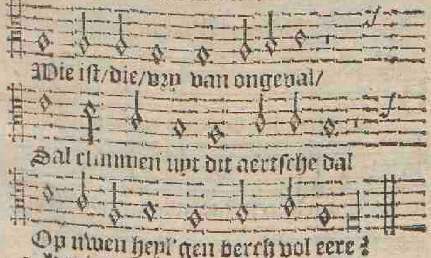 Wie ist/die/vry van ongeval/
Sal climmen upt dit aertsche dal
Op uwen heyl'gen berch vol eere?